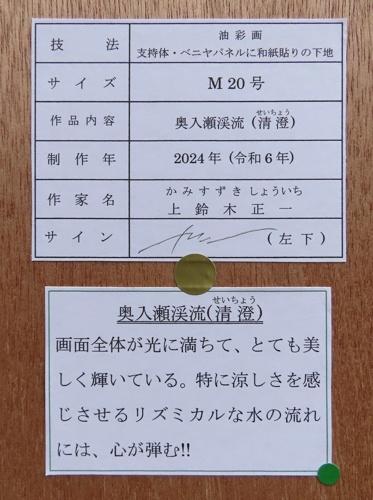 技法 油彩画
支持体・ベニヤパネルに和紙貼りの下地
サイズ M20号
作品内容 奥入瀬渓流(清澄)
せいちょう
制作年 2024年(令和6年)
かみすずきしょういち
作家名 上鈴木正一
サイン (左下)
せいちょう
奥入瀬渓流(清澄)
画面全体が光に満ちて、とても美
しく輝いている。特に涼しさを感
じさせるリズミカルな水の流れ
には、心が弾む!!